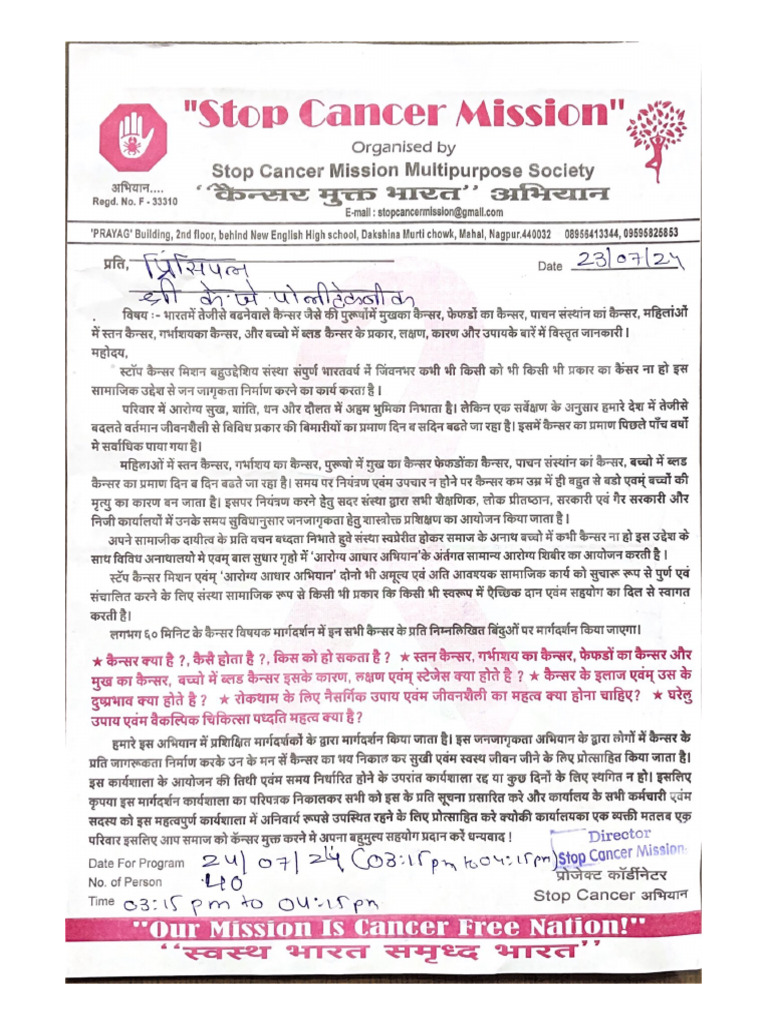 "Stop Cancer Mission"
Organised by
Stop Cancer Mission Multipurpose Society
अभियान....
Regd. No. F - 33310
“कैन्सर मुक्त भारत” अभियान
E-mail : stopcancermission@gmail.com
'PRAYAG' Building, 2nd floor, behind New English High school, Dakshina Murti chowk, Mahal, Nagpur.440032 08956413344, 09595825853
प्रति, प्रिंसिपल
Date 23/07/24
श्री के.जे पोलीटेकनीक
विषय :- भारतमें तेजीसे बढनेवाले कैन्सर जैसे की पुरूषोंमें मुखका कैन्सर, फेफडों का कैन्सर, पाचन संस्थांन कां कैन्सर, महिलांओं
में स्तन कैन्सर, गर्भाशयका कैन्सर, और बच्चो में ब्लड कैन्सर के प्रकार, लक्षण, कारण और उपायके बारें में विस्तृत जानकारी ।
महोदय,
स्टॉप कैन्सर मिशन बहुउद्देशिय संस्था संपुर्ण भारतवर्ष में जिंवनभर कभी भी किसी को भी किसी भी प्रकार का कैंसर ना हो इस
सामाजिक उद्देश से जन जागृकता निर्माण करने का कार्य करता है ।
परिवार में आरोग्य सुख, शांति, धन और दौलत में अहम भुमिका निभाता है। लेकिन एक सर्वेक्षण के अनुसार हमारे देश में तेजीसे
बदलते वर्तमान जीवनशैली से विविध प्रकार की बिमारीयों का प्रमाण दिन ब सदिन बढते जा रहा है। इसमें कैन्सर का प्रमाण पिछले पाँच वर्षो
मे सर्वाधिक पाया गया है।
महिलाओं में स्तन कैन्सर, गर्भाशय का कैन्सर, पुरूषो में मुख का कैन्सर फेफडोंका कैन्सर, पाचन संस्थांन कां कैन्सर, बच्चो में ब्लड
कैन्सर का प्रमाण दिन ब दिन बढते जा रहा है। समय पर नियंत्रण एवंम उपचार न होने पर कैन्सर कम उम्र में ही बहुत से बडो एवम्ं बच्चों की
मृत्यु का कारण बन जाता है। इसपर नियंत्रण करने हेतु सदर संस्था द्वारा सभी शैक्षणिक, लोक प्रीतष्ठान, सरकारी एवं गैर सरकारी और
निजी कार्यालयों में उनके समय सुविधानुसार जनजागृकता हेतु शास्त्रोक्त प्रशिक्षण का आयोजन किया जाता है ।
अपने सामाजीक दायीत्व के प्रति वचन बध्दता निभाते हुवे संस्था स्वप्रेरीत होकर समाज के अनाथ बच्चो में कभी कैन्सर ना हो इस उद्देश के
साथ विविध अनाथालयो मे एवम् बाल सुधार गृहो में 'आरोग्य आधार अभियान'के अंर्तगत सामान्य आरोग्य शिबीर का आयोजन करती है ।
स्टॅप कैन्सर मिशन एवंम् 'आरोग्य आधार अभियान' दोनो भी अमूल्य एवं अति आवश्यक सामाजिक कार्य को सुचारू रूप से पुर्ण एवं
संचालित करने के लिए संस्था सामाजिक रूप से किसी भी प्रकार कि किसी भी स्वरूप में ऐच्छिक दान एवंम सहयोग का दिल से स्वागत
करती है।
लगभग ६० मिनिट के कैन्सर विषयक मार्गदर्शन में इन सभी कैन्सर के प्रति निम्नलिखित बिंदुओं पर मार्गदर्शन किया जाएगा।
★ कैन्सर क्या है ?, कैसे होता है ?, किस को हो सकता है ? ★ स्तन कैन्सर, गर्भाशय का कैन्सर, फेफडों का कैन्सर और
मुख का कैन्सर, बच्चो में ब्लड कैन्सर इसके कारण, लक्षण एवंम् स्टेजेस क्या होते है ? ★ कैन्सर के इलाज एवंम् उस के
दुष्प्रभाव क्या होते है ? ★ रोकथाम के लिए नैसर्गिक उपाय एवंम जीवनशैली का महत्व क्या होना चाहिए? ★ घरेलु
उपाय एवंम वैकल्पिक चिकित्सा पध्दति महत्व क्या है?
हमारे इस अभियान में प्रशिक्षित मार्गदर्शकों के द्वारा मार्गदर्शन किया जाता है। इस जनजागृकता अभियान के द्वारा लोगों में कैन्सर के
प्रति जागरूकता निर्माण करके उन के मन सें कैन्सर का भय निकाल कर सुखी एवंम स्वस्थ जीवन जीने के लिए प्रोत्साहित किया जाता है।
इस कार्यशाला के आयोजन की तिथी एवंम समय निर्धारित होने के उपरांत कार्यशाला रद्द या कुछ दिनों के लिए स्थगित न हो। इसलिए
कृपया इस मार्गदर्शन कार्यशाला का परिपत्रक निकालकर सभी को इस के प्रति सूचना प्रसारित करे और कार्यालय के सभी कर्मचारी एवंम
सदस्य को इस महत्वपुर्ण कार्यशाला में अनिवार्य रूपसे उपस्थित रहने के लिए प्रोत्साहित करे क्योकी कार्यालयका एक व्यक्ती मतलब एक
परिवार इसलिए आप समाज को कॅन्सर मुक्त करने मे अपना बहुमुल्य सहयोग प्रदान करें धन्यवाद !
Director
Stop Cancer Mission
Date For Program 24/07/24 (03:15pm to 04:15pm)
प्रोजेक्ट कॉर्डीनेटर
No. of Person 40
Stop Cancer अभियान
Time 03:15 pm to 04:15pm
"Our Mission Is Cancer Free Nation!"
“स्वस्थ भारत समृध्द भारत”